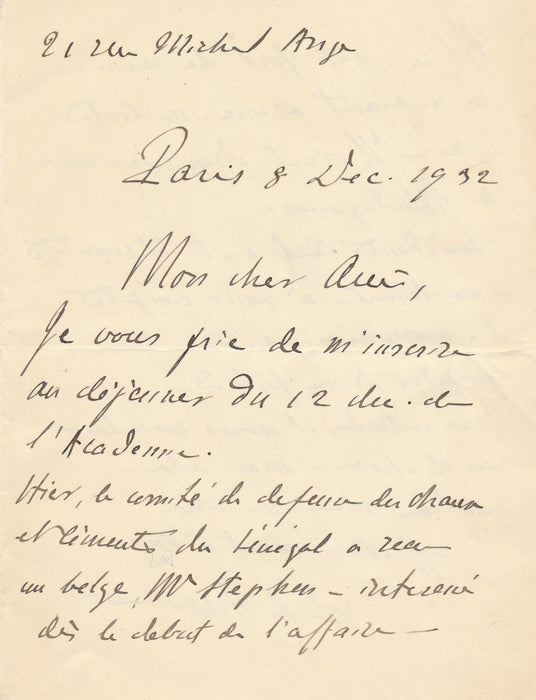 21 rue Michel Ange
Paris 8 Dec. 1932
Mon cher Ami,
Je vous prie de m'inscrire
au déjeuner du 12 dec. de
l'Academie.
Hier, le comité de defense des chaux
et ciments du Sénégal a recu
un belge, Mr Stephen - interessé
dès le debut de l'affaire -